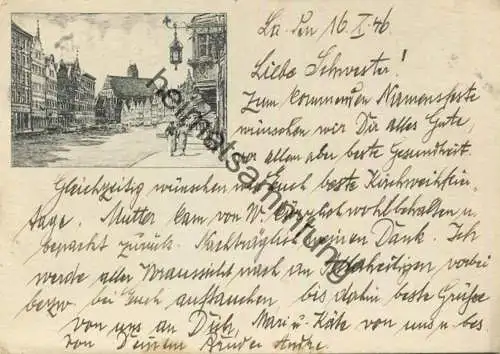 La. den 16.X.46.
Liebe Schwester!
Zum kommenden Namensfeste
wünschen wir Dir alles Gute,
vor allem aber beste Gesundheit.
Gleichzeitig wünschen wir Euch beste Kirchweihfeier-
tage. Mutter kam von W. wohlbehalten u.
bepackt zurück. Nachträglich meinen Dank. Ich
werde aller Voraussicht nach an Allerheiligen vorbei
bezw. bei Euch auftauchen bis dahin beste Grüsse
von uns an Dich, Mari u. Käte von uns u. bes.
von Deinem Bruder Andre.
heimatsammlung